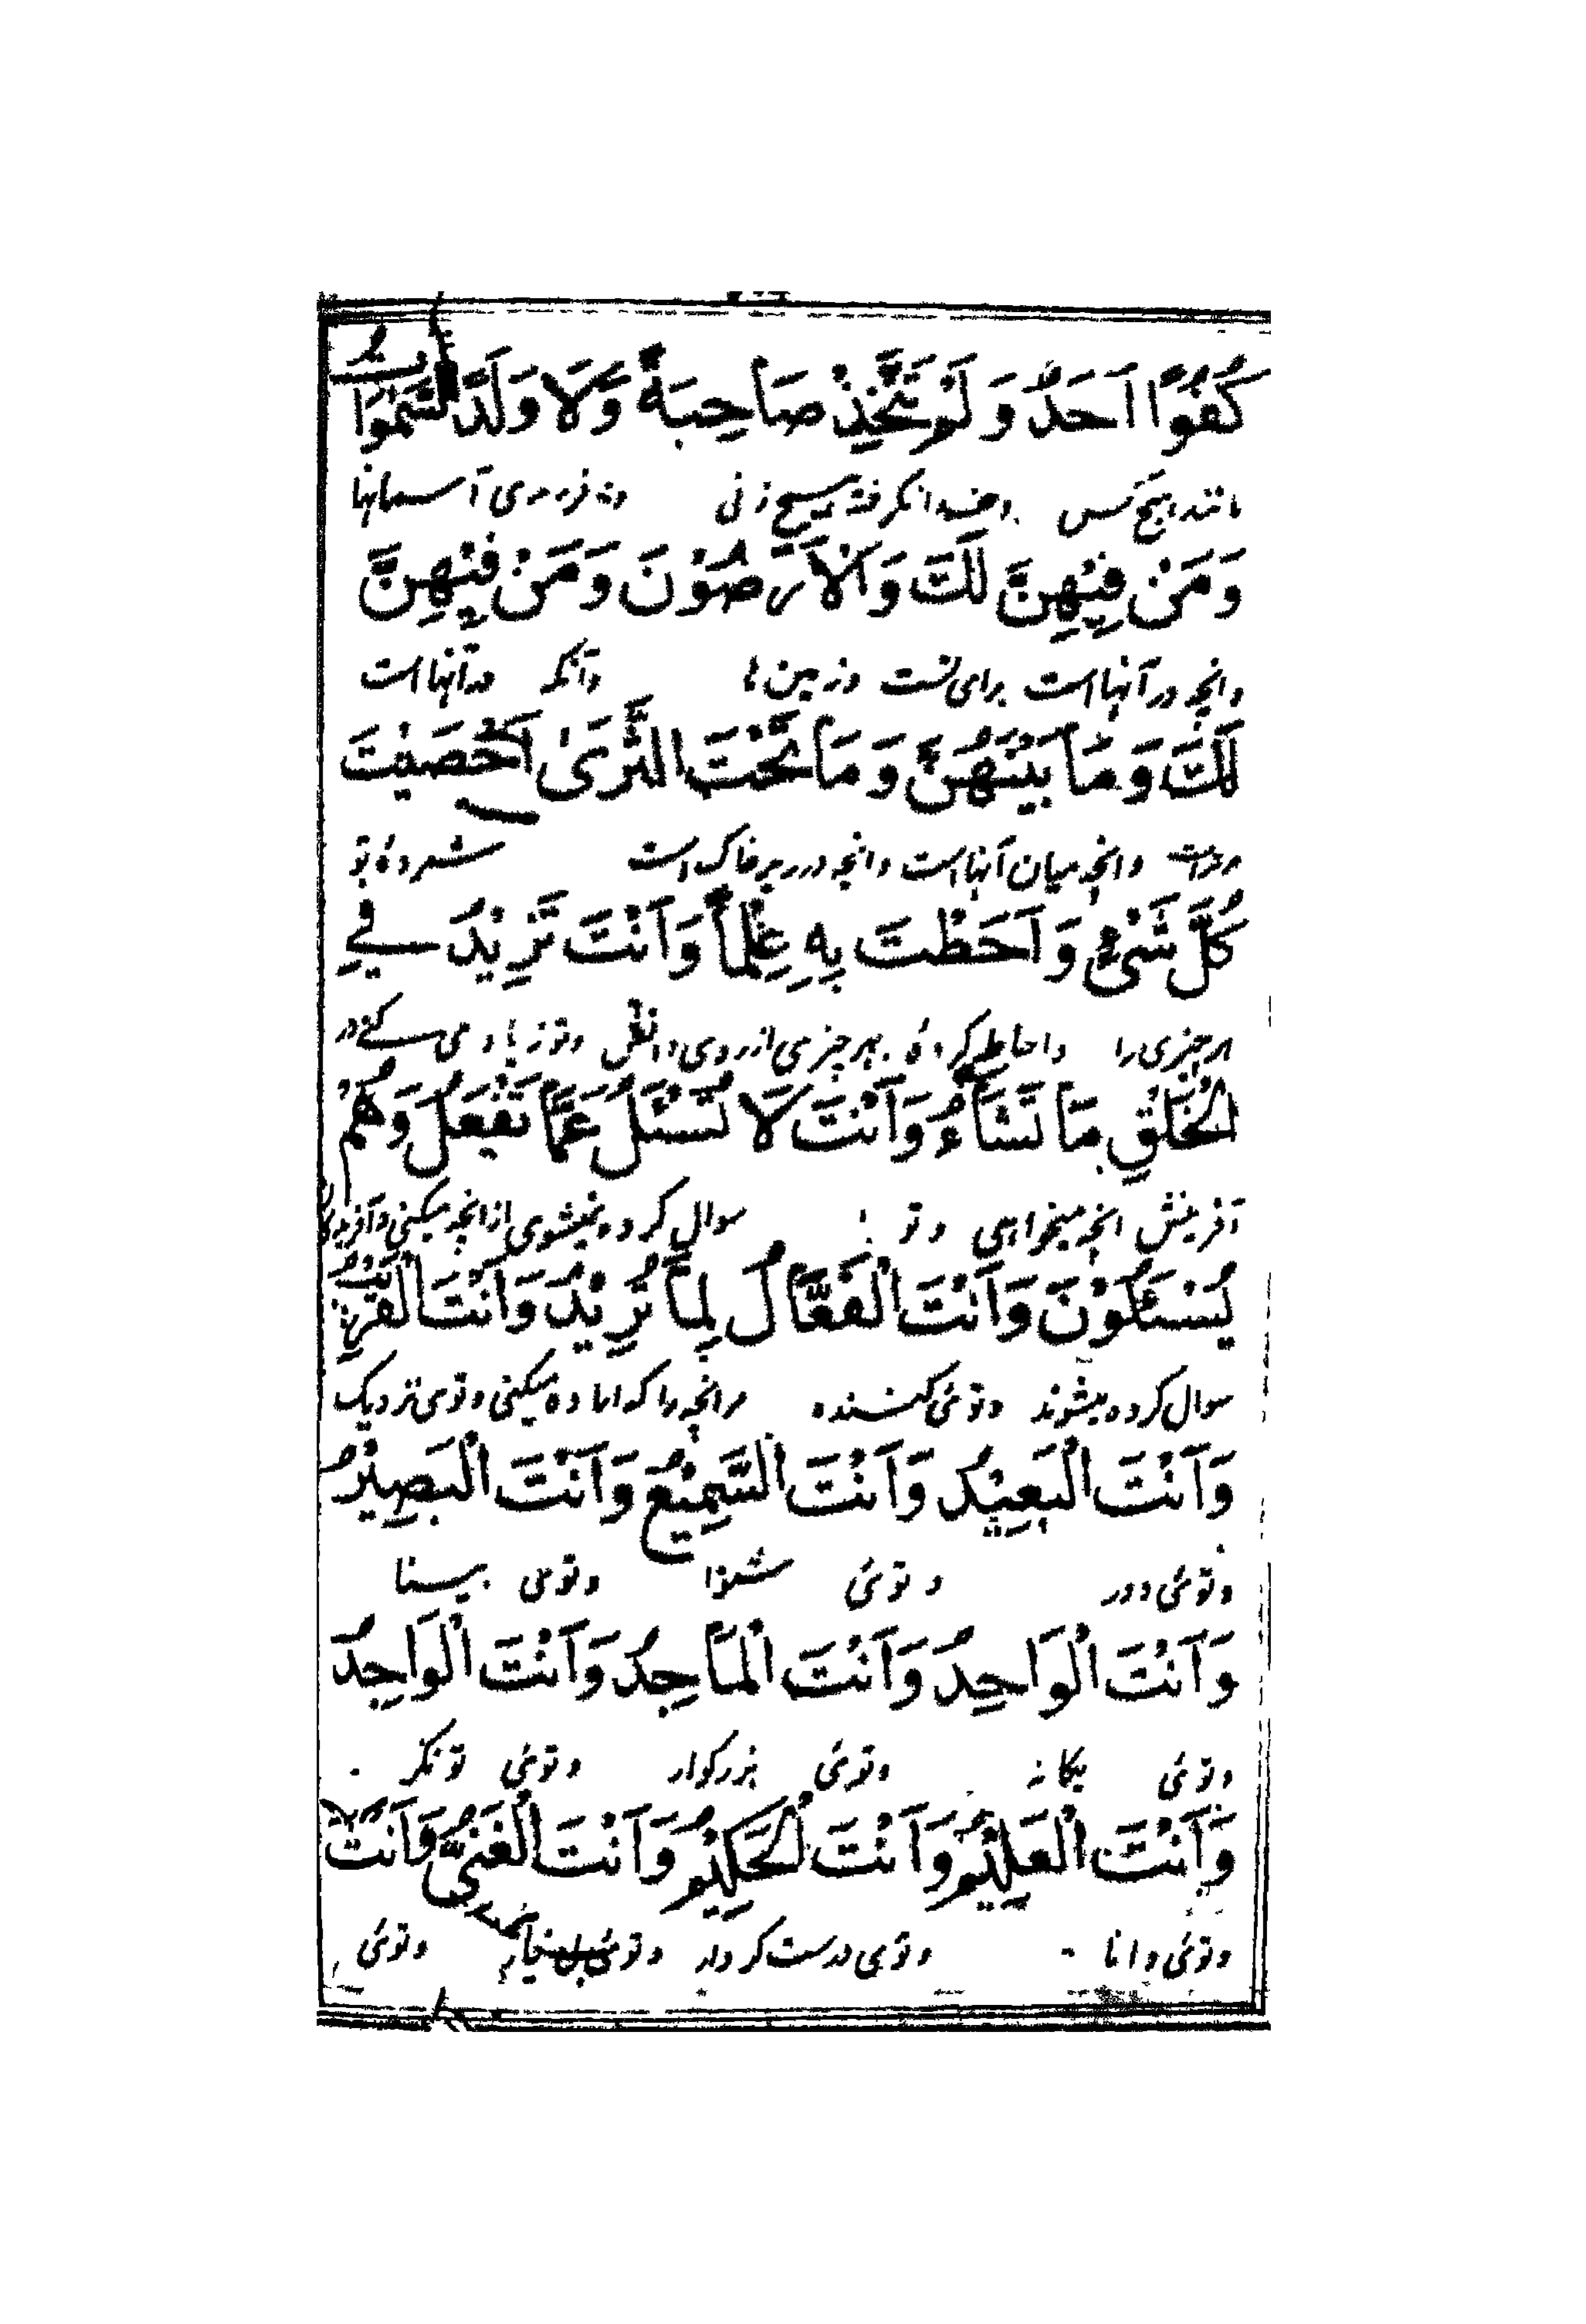 كُفُوًا اَحَدٌ وَ لَمْ تَتَّخِذْ صَاحِبَةً وَّلَا وَلَدًا السَّمٰوَاتُ
مانند هیچ کس و خود را نگرفته هیچ زنی و نه فرزندی آسمانها
وَ مَنْ فِيْهِنَّ لَكَ وَ الْاَرَضُوْنَ وَ مَنْ فِيْهِنَّ
وانچه در آنهااست برای تست وزمین ها وآنکه در آنهااست
لَكَ وَ مَا بَيْنَهُنَّ وَ مَا تَحْتَ الثَّرٰى اَحْصَيْتَ
مرتراست وانچه میان آنهااست وانچه در زیر خاک است شمرده تو
كُلَّ شَيْءٍ وَ اَحَطْتَ بِهِ عِلْماً وَ اَنْتَ تَزِيْدُ فِي
هر چیزی را واحاطه کرده بهر چیزی از روی دانش وتو زیاد می کنی در
الْخَلْقِ مَا تَشَاءُ وَ اَنْتَ لَا تُسْئَلُ عَمَّا تَفْعَلُ وَهُمْ
آفرینش انچه میخواهی وتو سوال کرده نمیشوی ازانچه میکنی
يُسْئَلُوْنَ وَ اَنْتَ الْفَعَّالُ لِمَا تُرِيْدُ وَ اَنْتَ الْقَرِيْبُ
سوال کرده میشوند وتوئی کننده مرانچه را که اراده میکنی وتوئی نزدیک
وَ اَنْتَ الْبَعِيْدُ وَ اَنْتَ السَّمِيْعُ وَ اَنْتَ الْبَصِيْرُ
وتوئی دور وتوئی شنوا وتوئی بینا
وَ اَنْتَ الْوَاحِدُ وَ اَنْتَ الْمَاجِدُ وَ اَنْتَ الْوَاجِدُ
وتوئی یکانه وتوئی بزرکوار وتوئی تونکر
وَ اَنْتَ الْعَلِيْمُ وَ اَنْتَ الْحَكِيْمُ وَ اَنْتَ الْغَنِيُّ وَ اَنْتَ
وتوئی دانا وتوئی درست کردار وتوئی وتوئی